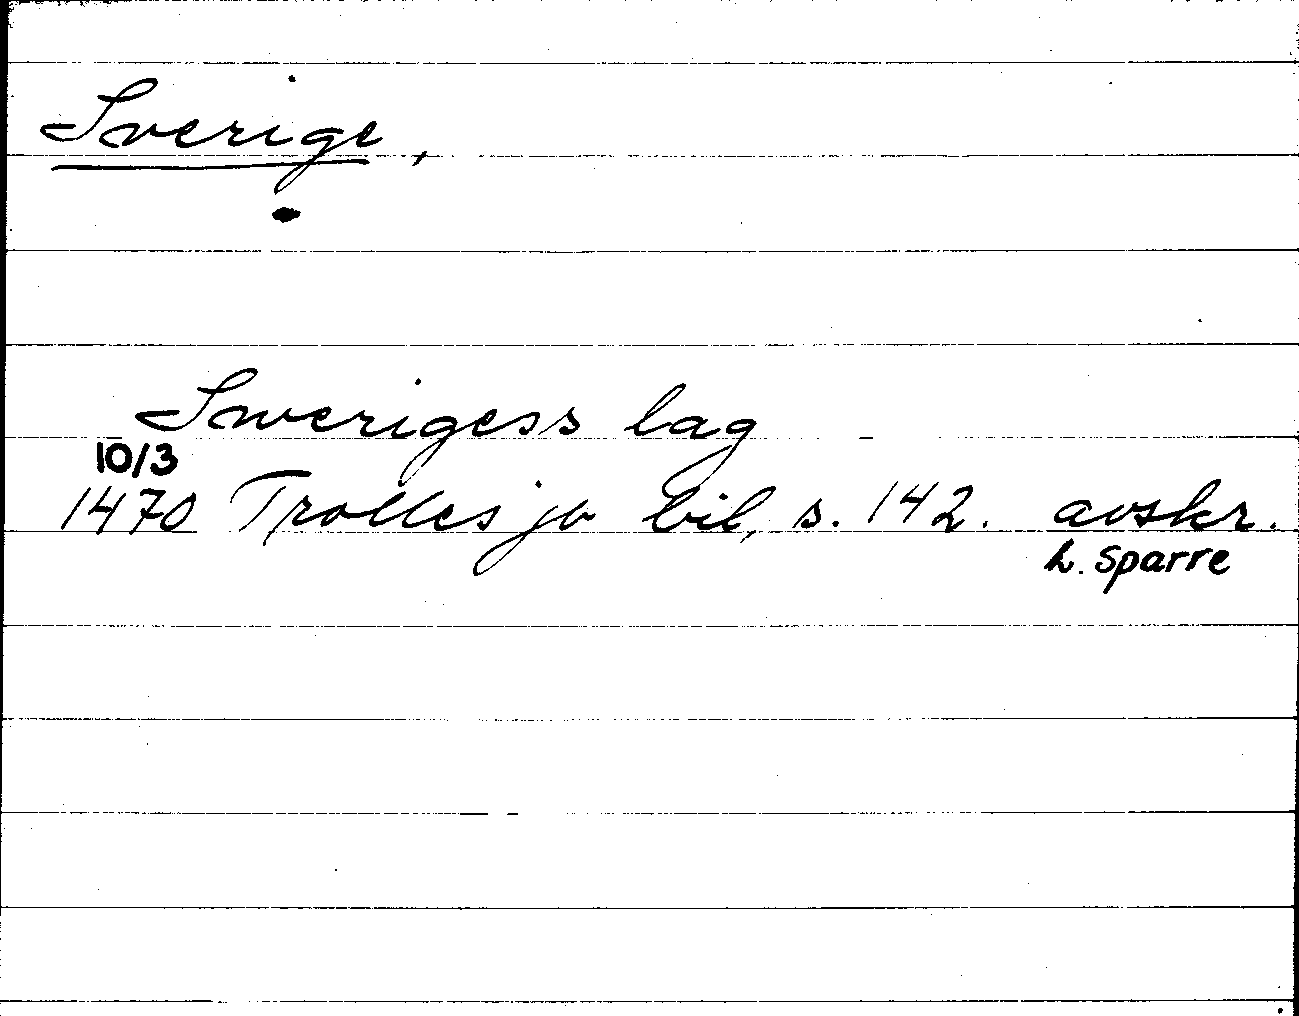 Sverige,
Swerigess lag
10/3
1470 Trolles jb bil, s. 142. avskr.
h. Sparre